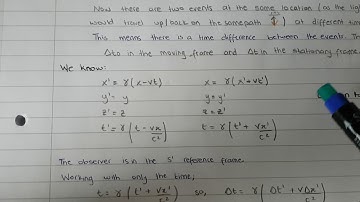 Now there are two events at the same location (as the light
would travel up/back on the same path) at different
This means there is a time difference between the events. Th
Δt₀ in the moving frame and Δt in the stationary frame.
We know:
x' = γ(x-vt) x = γ(x'+vt')
y' = y y = y'
z' = z z = z'
t' = γ(t - vx/c²) t = γ(t' + vx'/c²)
The observer is in the S' reference frame.
Working with only the time,
t = γ(t' + vx'/c²) so, Δt = γ(Δt' + vΔx'/c²)